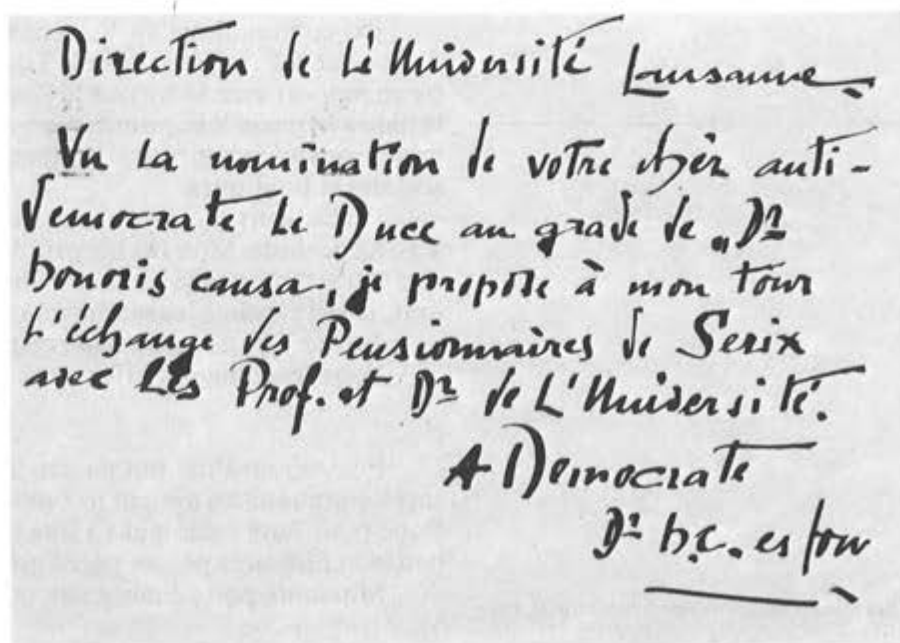 Direction de L'Université Lausanne
Vu La nomination de votre chèr anti-
democrate Le Duce au grade de „Dr
honoris causa, je propose à mon tour
l'échange des Pensionnaires de Serix
avec Les Prof. et Dr de L'Université.
A Democrate
Dr h.c. es fou